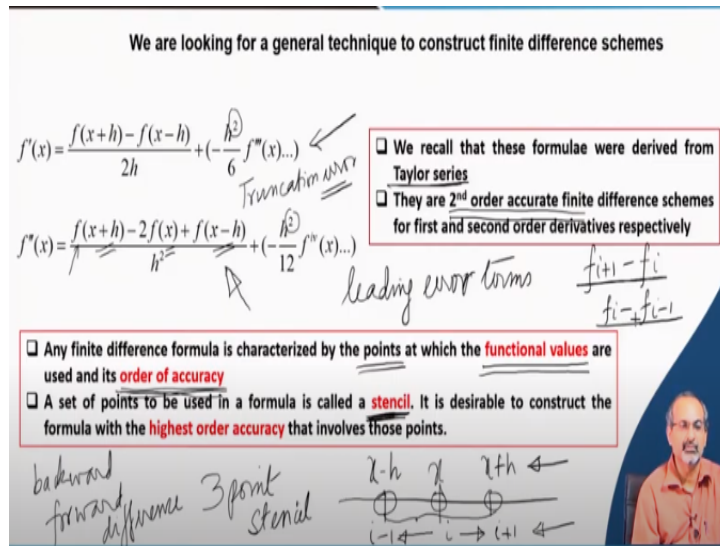 We are looking for a general technique to construct finite difference schemes
f'(x) = \frac{f(x+h) - f(x-h)}{2h} + (-\frac{h^2}{6} f'''(x)...)
Truncation error
f''(x) = \frac{f(x+h) - 2f(x) + f(x-h)}{h^2} + (-\frac{h^2}{12} f^{iv}(x)...)
❑ We recall that these formulae were derived from
Taylor series
❑ They are 2nd order accurate finite difference schemes
for first and second order derivatives respectively
leading error terms
f_{i+1} - f_i
f_i - f_{i-1}
❑ Any finite difference formula is characterized by the points at which the functional values are
used and its order of accuracy
❑ A set of points to be used in a formula is called a stencil. It is desirable to construct the
formula with the highest order accuracy that involves those points.
backward
forward
difference
3 point
stencil
x-h x x+h ←
i-1 ← i → i+1 ←